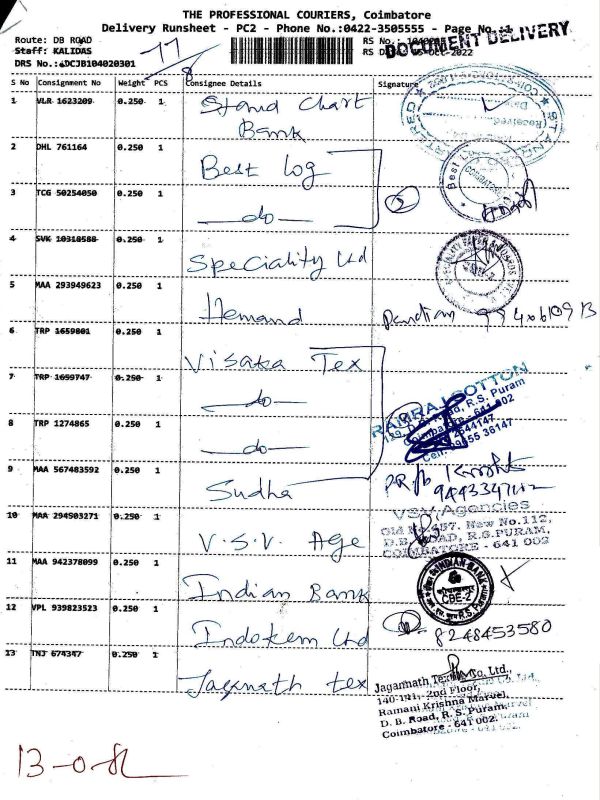 THE PROFESSIONAL COURIERS, Coimbatore
Delivery Runsheet - PC2 - Phone No.:0422-3505555 - Page No.:1
Route: DB ROAD
Staff: KALIDAS
DRS No.:
DOCUMENT DELIVERY
RS No.:
S No Consignment No Weight PCS Consignee Details Signature
1 VLR 1623209 0.250 1 Stand Chart
Bank
2 DHL 761164 0.250 1 Best log
3 TCG 50254050 0.250 1 — do —
4 SVK 10318588 0.250 1 Speciality Ltd
5 MAA 293949623 0.250 1 Hemand
6 TRP 1659801 0.250 1 Visaka Tex
7 TRP 1659747 0.250 1 — do —
8 TRP 1274865 0.250 1 — do —
RAMRAJ COTTON
R.S. Puram
9 MAA 567483592 0.250 1 Sudha
10 MAA 294503271 0.250 1 V.S.V. Age
VSV Agencies
Old No.457, New No.112,
D.B. ROAD, R.S.PURAM,
COIMBATORE - 641 002
11 MAA 942378099 0.250 1 Indian Bank
INDIAN BANK
CBE-2
R.S. Puram
12 VPL 939823523 0.250 1 Indokem Ltd
8248453580
13 TNJ 674347 0.250 1 Jagannath tex
Jagannath Textile Co. Ltd.,
140-141, 2nd Floor,
Ramani Krishna Marvel,
D. B. Road, R. S. Puram,
Coimbatore - 641 002.